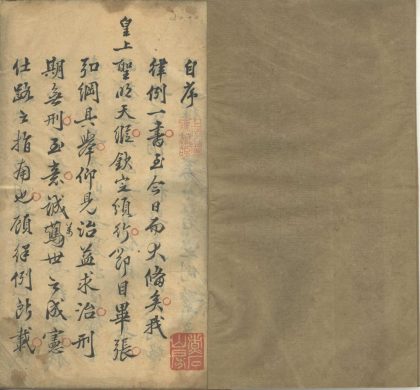 自序
律例一書至今日而大備矣我
皇上聖明天縱欽定頒行節目畢張
弘綱具舉仰見治益求治刑
期無刑至意誠萬世之成憲
仕路之指南也顧律例所載